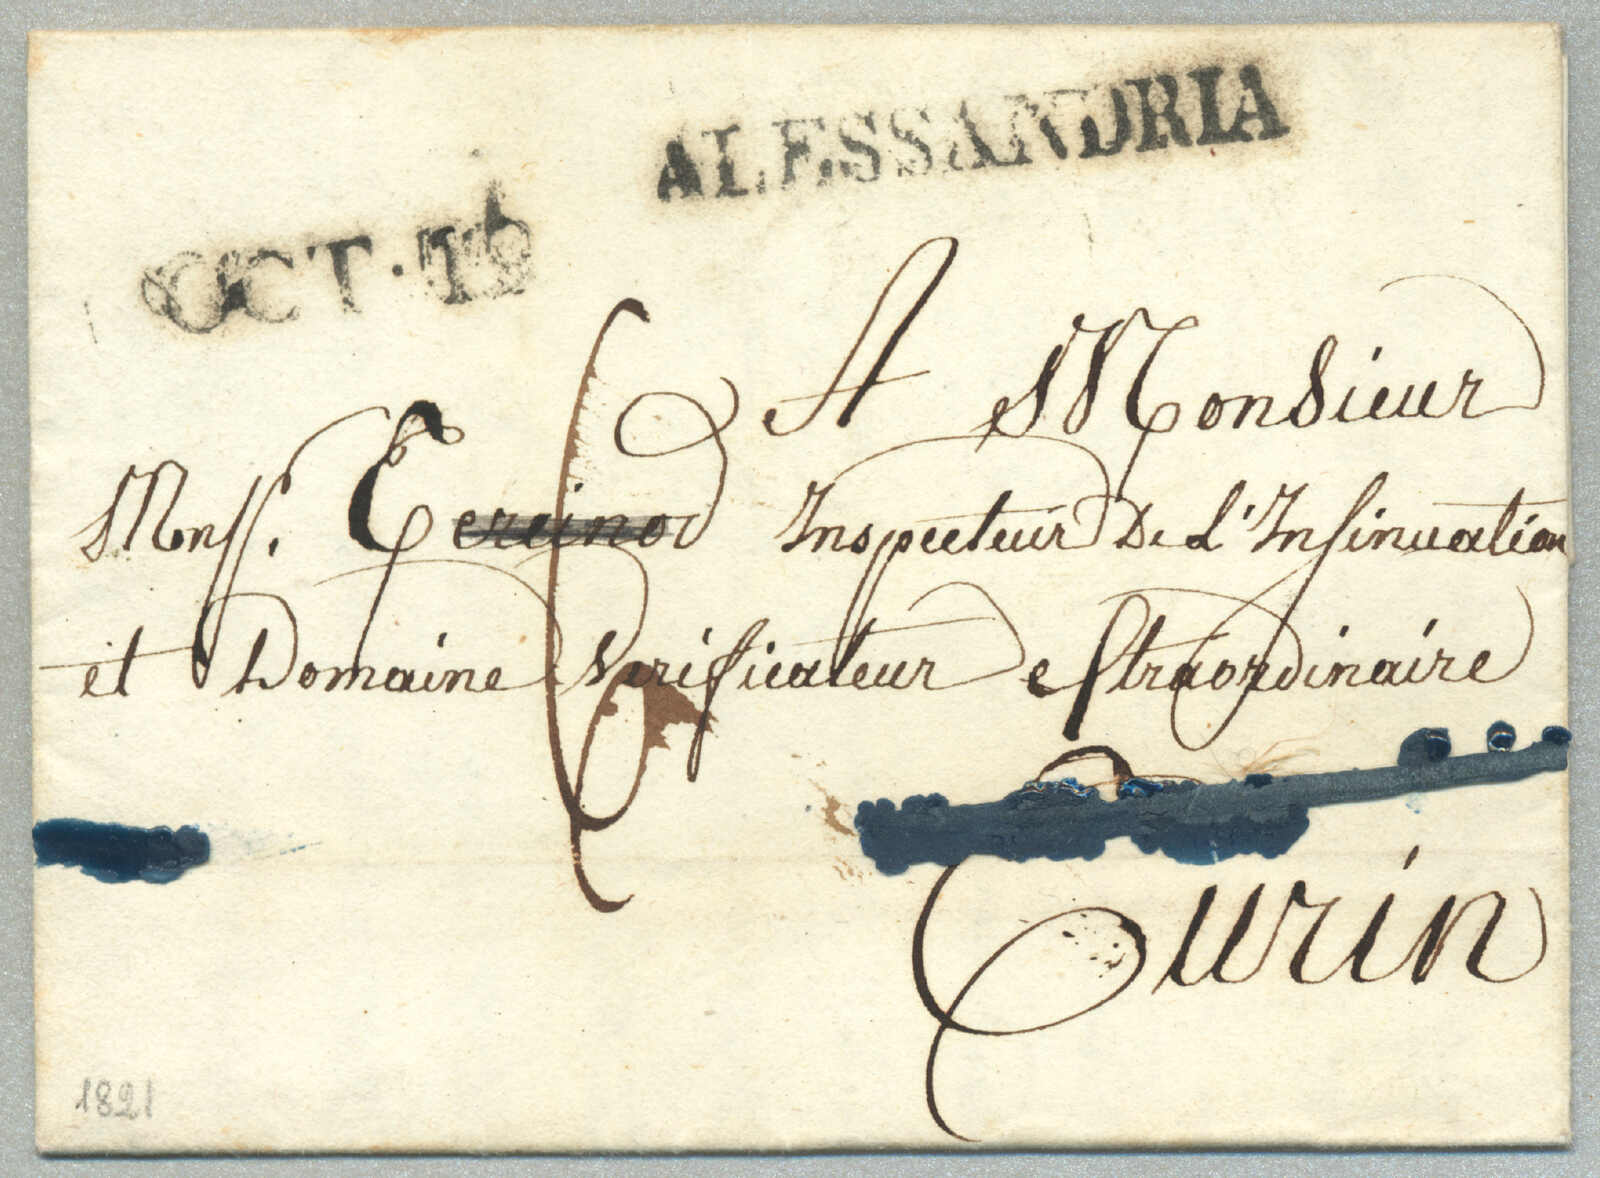 ALESSANDRIA
OCT·19
A Monsieur
Monss. Inspecteur De L'Insinuation
et Domaine Verificateur estraordinaire
Turin
1821